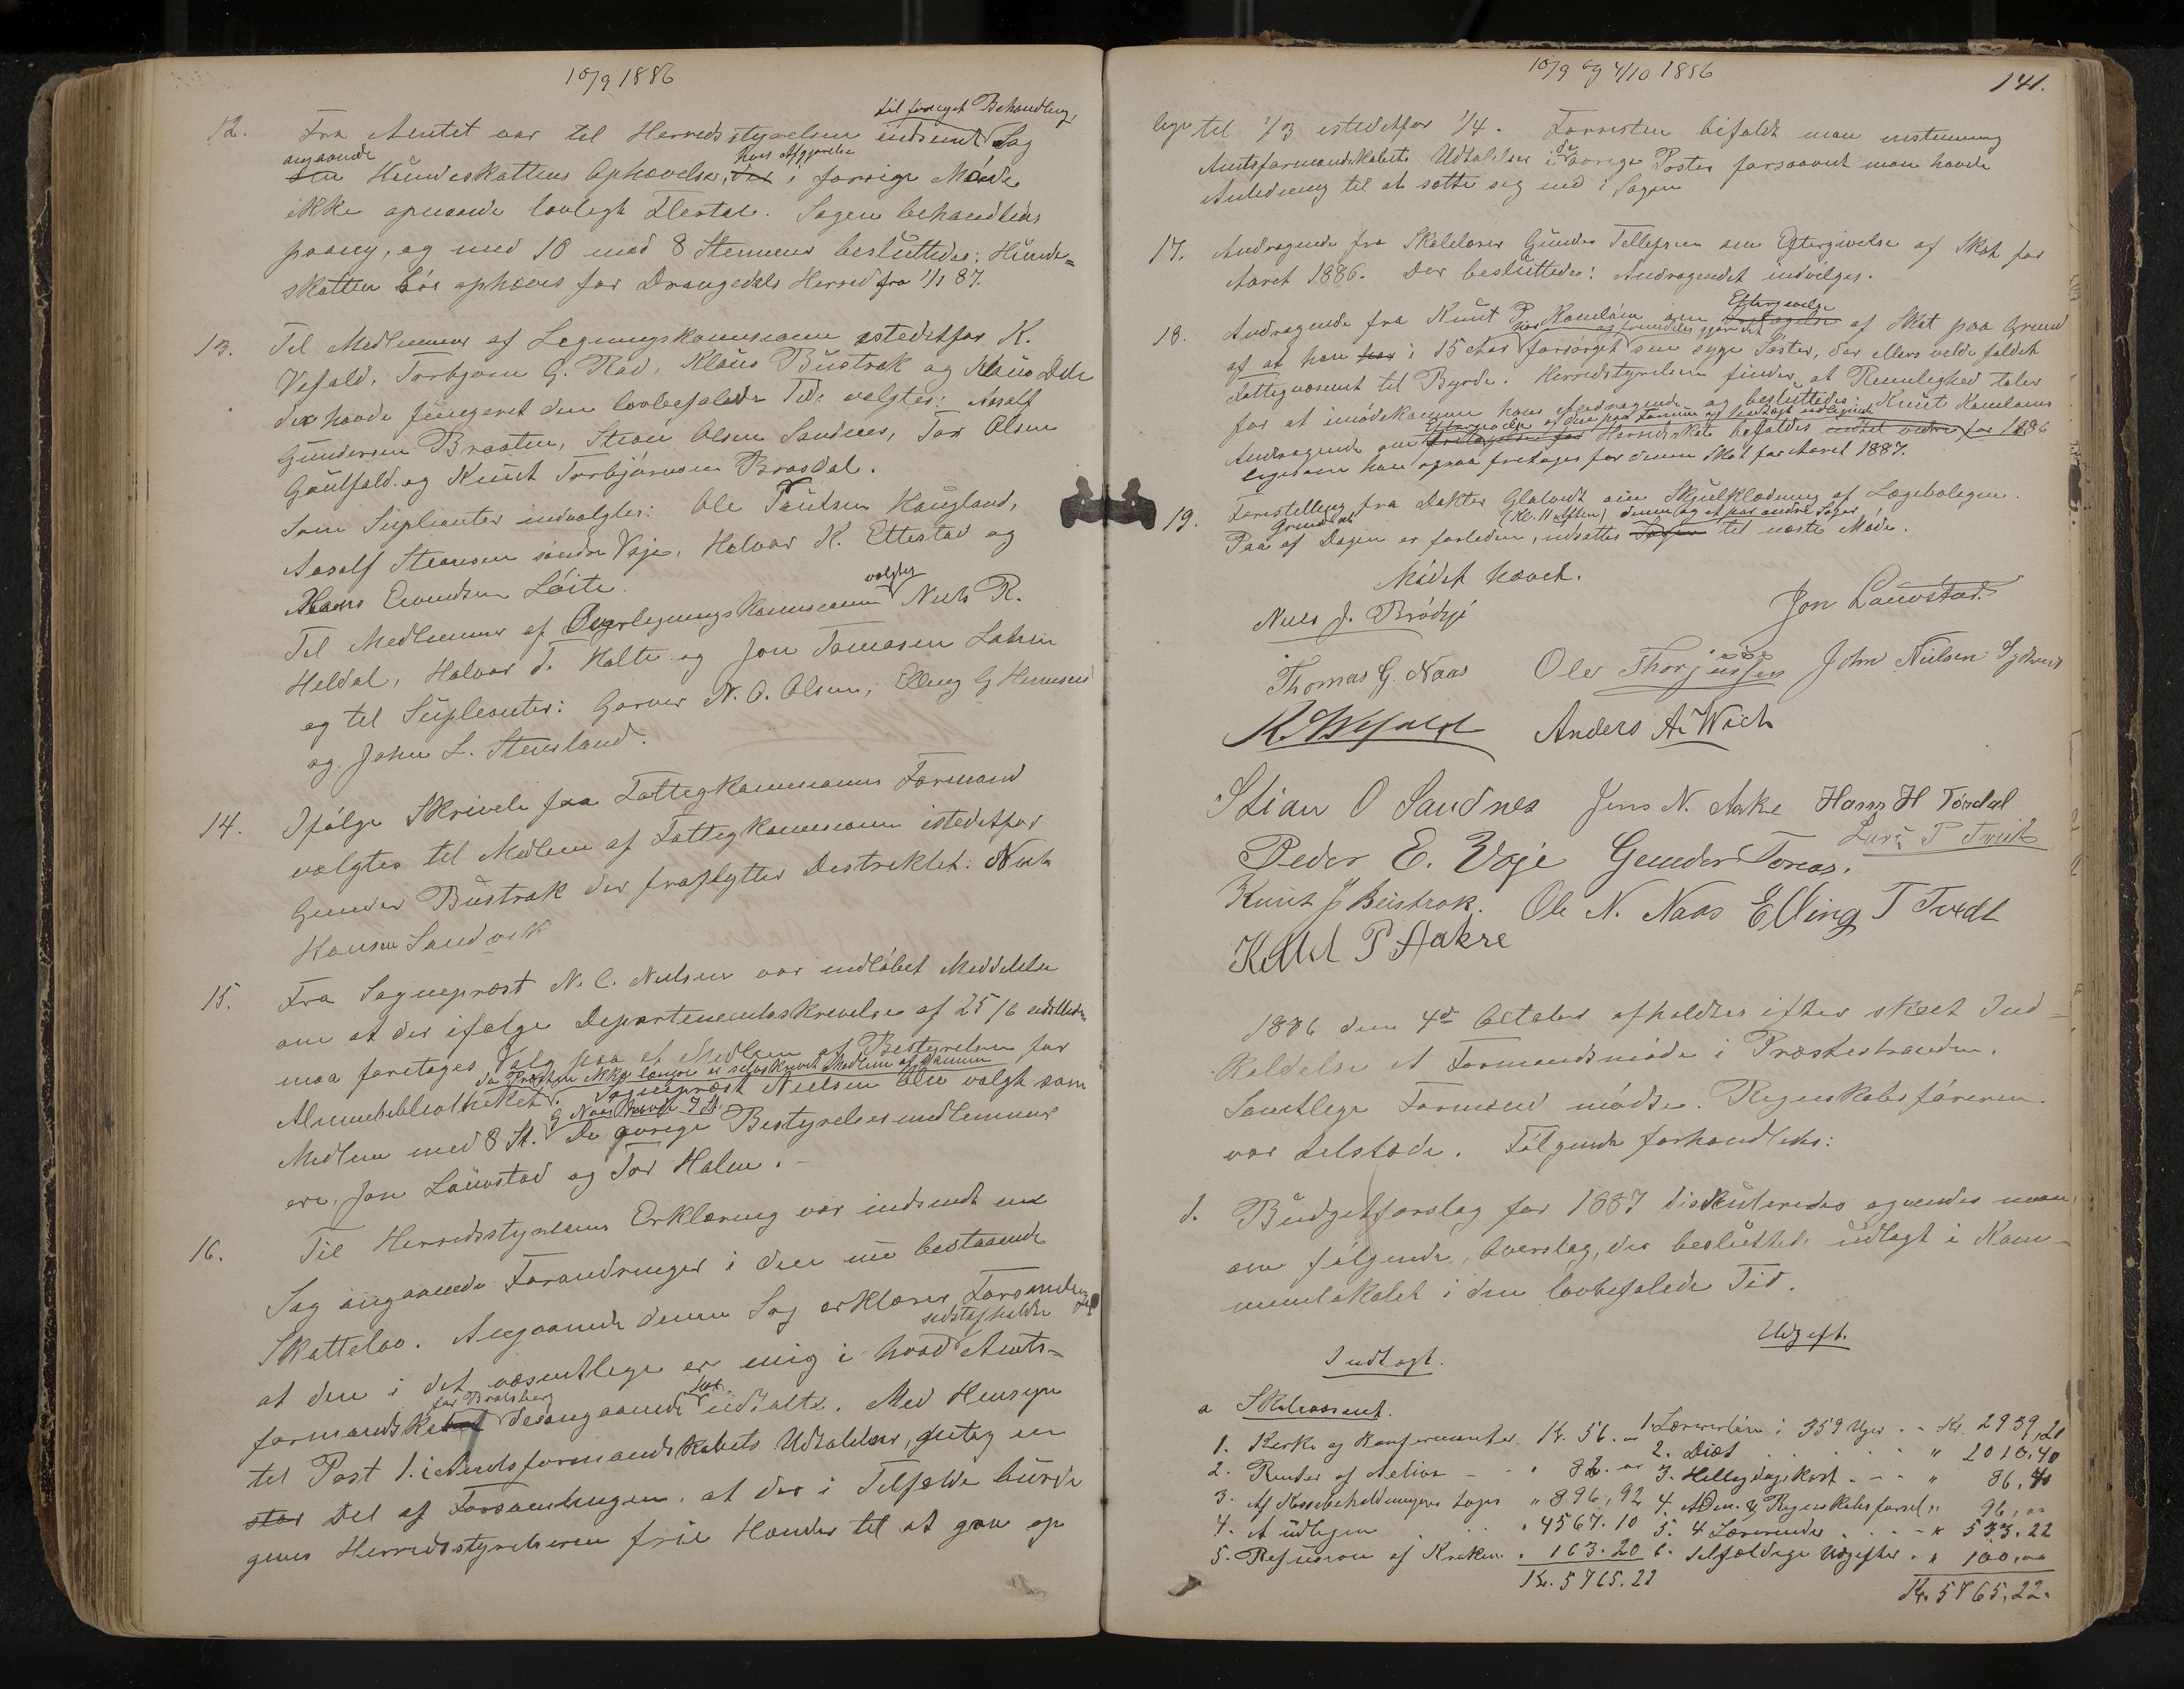 10/9 1886
til fornyet Behandling
12. Fra Amtet var til Herredsstyrelsen indsendt Sag
angaaende hvis Afgjørelse
den Hundeskattens Ophævelse, der i forrige Møde
ikke opnaaede lovligt Flertal. Sagen behandledes
paany, og med 10 mod 8 Stemmer besluttedes: Hunde=
skatten bør ophæves for Drangedals Herred fra 1/1 87.
13. Til Medlemmer af Ligningskommissionen istedetfor K.
Vefald, Torbjørn G. Rød, Klaus Bustrak og Klaus Dale
der havde fungeret den lovbefalede Tid valgtes: Aasulf
Gundersen Braaten, Stian Olsen Sandnes, Tor Olsen
Gautfald og Knut Torbjørnsen Brosdal.
Som Supleanter indvalgtes: Ole Paulsen Haugland,
Aasulf Steansen søndre Voje, Halvor K. Ettestad og
Hans Eivindsen Løite.
valgtes
Til Medlemmer af Overligningskommissionen Niels R.
Heldal, Halvor T. Holte og Jon Tomasen Lahn
og til Supleanter: Garver N. O. Olsen, Elling G Henneseid
og John L. Stensland.
14. Ifølge Skrivelse fra Fattigkommissionens Formand
valgtes til Medlem af Fattigkommissionen istedetfor
Gunder Bustrak der fraflytter Destriktet: Niels
Hansen Sandvik
15. Fra Sogneprest N. C. Nielsen var indløbet Meddelelse
om at der ifølge Departementsskrivelse af 25/6 sidstleden
maa foretages Valg paa et Medlem af Bestyrelsen for
da Præsten ikke længer er selvskrevet Medlem af samme
Almuebibliotheket. Sogneprest Nielsen blev valgt som
G Naas havde 7 St.
Medlem med 8 St. De øvrige Bestyrelsesmedlemmer
ere, Jon Lauvstad og Tor Holm.
16. Til Herredsstyrelsens Erklæring var indsendt en
Sag angaaende Forandringer i den nu bestaaende
Skattelov. Angaaende denne Sag erklærer Forsamlingen
sidstafholdte
at den i det væsentlige er enig i hvad Amts=
for Bratsberg har
formandskabet desangaaende udtalt. Med Hensyn
til Post 1. i Amtsformandskabets Udtalelser, antog en
stor Del af Forsamlingen, at der i Tilfælde burde
gives Herredsstyrelserne frie Hænder til at gaa op
10/9 og 4/10 1886
141.
lige til 1/3 istedetfor 1/4. Forresten bifaldt man enstemmig
de
Amtsformandskabets Udtalelser i øvrige Poster forsaavidt man havde
Anledning til at sætte sig ind i Sagen
17. Andragende fra Skolelærer Gunder Tellefsen om Eftergivelse af Skat for
Aaret 1886. Der besluttedes: Andragendet indvilges.
Eftergivelse
18. Andragende fra Knut P. Kamlom om Fritagelse af Skat paa Grund
har og fremdeles gjør det
af at han har i 15 Aar forsørget sin syge Søster, der ellers vilde faldet
Fattigvæsenet til Byrde. Herredstyrelsen finder, at Rimelighed taler
for at imødekomme hans Andragende og besluttedes: Knut Kamloms
Eftergivelse af den paa Formue og Indtægt udlignede
Andragende om Fritagelse for Herredsskat befaldes for 1886
ligesom han ogsaa fritages for denne Skat for Aaret 1887.
19. Forestilling fra Doktor Glatvedt om Skjulklædning af Lægeboligen.
Grund at (Kl. 11 aften) denne og et par andre Sager
Paa af Dagen er forleden, udsættes Sagen til næste Møde.
Mødet hævet.
Niels J. Brødsjø Jon Lauvstad
Thomas G. Naas Ole Thorjussen John Nielsen Sydtveit
K. Wefald Anders A. Woch
Stian O Sandnes Jens N. Aake Hans H Tørdal
Lars P Tveit
Peder E. Voje Gunder Tomas.
Knut J Beistrak. Ole N. Naas Elling T Tvedt
Kittil P Aakre
1886 den 4de October afholdtes efter skeet Ind=
kaldelse et Formandsmøde i Præstestranden.
Samtlige Formænd mødte. Regnskabsføreren
var tilstede. Følgende forhandledes:
1. Budgetforslag for 1887 diskuteredes og enedes man
om følgende Overslag, der besluttedes udlagt i Kom=
munelokalet i den lovbefalede Tid.
Indtægt. Udgift.
a Skolevæsenet.
1. Kirke og Konfirmanter Kr. 56. " 1. Lærerløn i 359 Uger - - Kr. 2939,20
2. Renter af Aktiva - - " 82. " 2. Diæt . . . . " 2010,40
3. Af Kassebeholdningen tages " 896,92 3. Helligdagskost - - - " 86,40
4. At udlignes . . . " 4567.10 4. Adm. & Regnskabsførsel " 96,00
5. Refusion af Kroken " 163.20 5. 4 Lærerinder . . . - " 533.22
6. Tilfældige Udgifter . " 100,00
Kr. 5765.22 Kr. 5765,22.